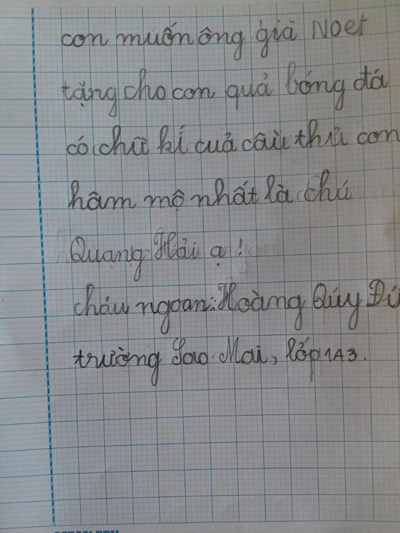 con muốn ông già Noel
tặng cho con quả bóng đá
có chữ kí cuả cầu thủ con
hâm mộ nhất là chú
Quang Hải ạ!
cháu ngoan: Hoàng Qúy Đứ
trường Sao Mai, lớp 1A3.